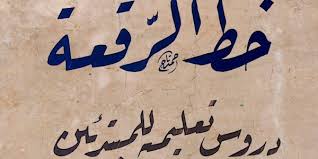 خط الرّقعة
دروس تعليمية للمبتدئين